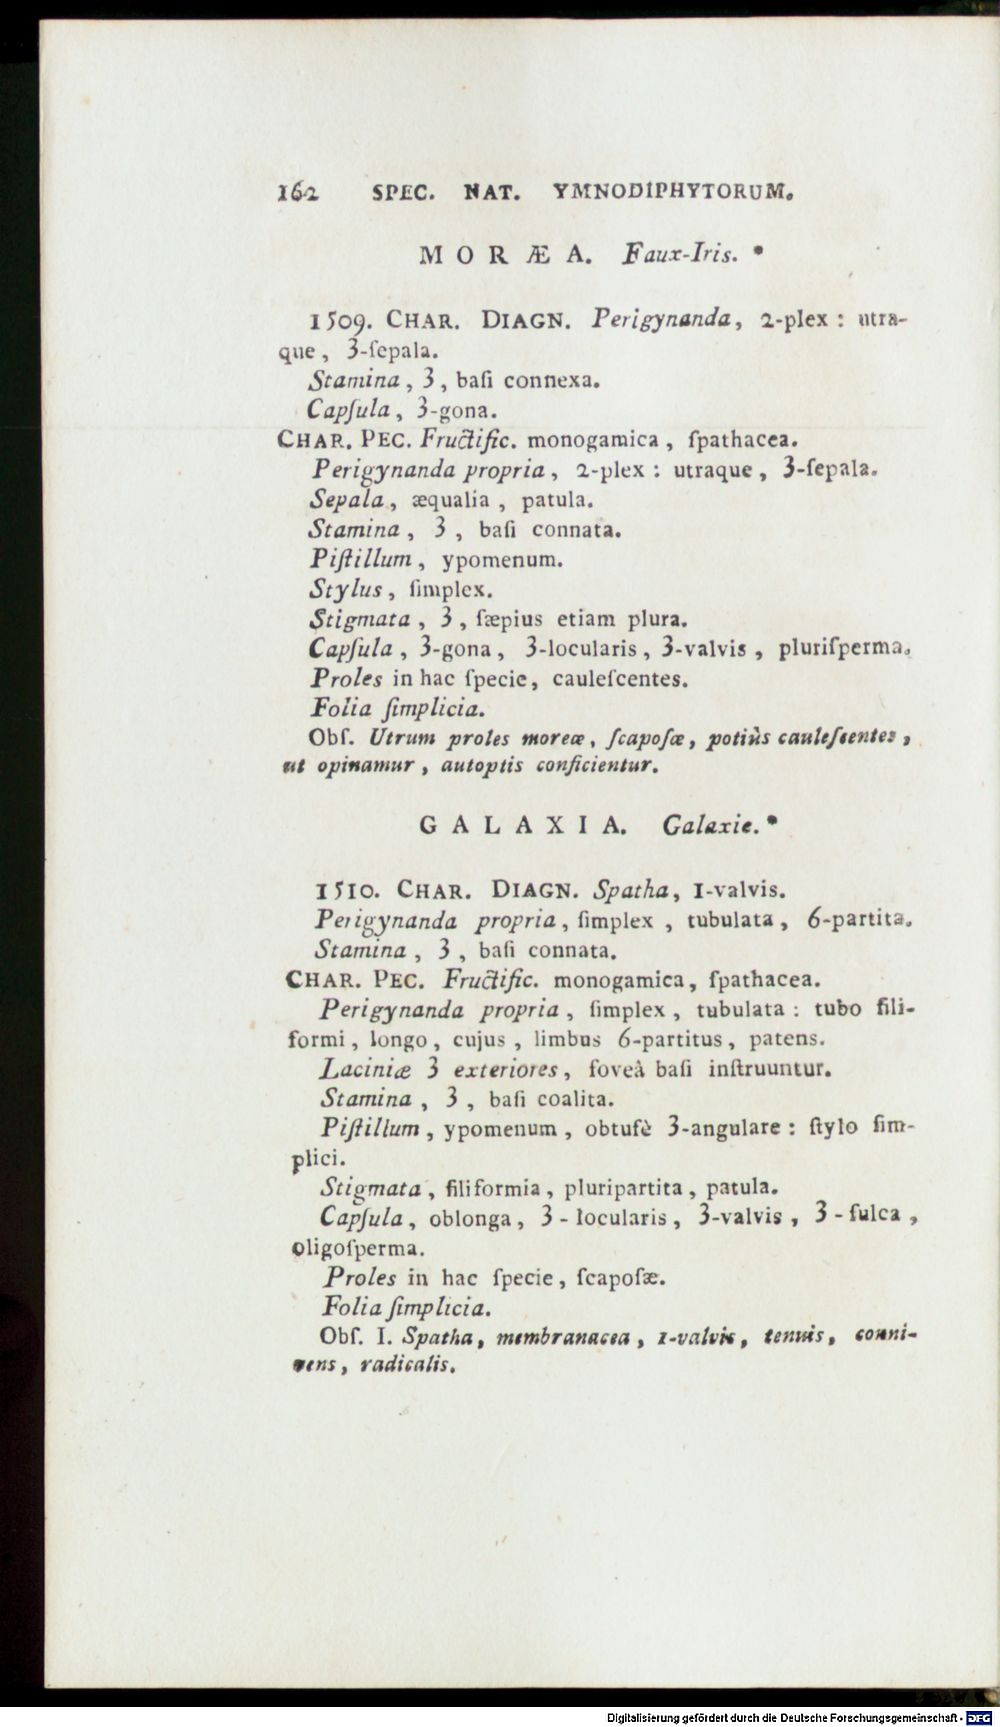 162 SPEC. NAT. YMNODIPHYTORUM.
MORÆA. Faux-Iris. *
1509. CHAR. DIAGN. Perigynanda, 2-plex : utra-
que, 3-ſepala.
Stamina, 3, baſi connexa.
Capſula, 3-gona.
CHAR. PEC. Fructific. monogamica, ſpathacea.
Perigynanda propria, 2-plex : utraque, 3-ſepala.
Sepala, æqualia, patula.
Stamina, 3, baſi connata.
Piſtillum, ypomenum.
Stylus, ſimplex.
Stigmata, 3, ſæpius etiam plura.
Capſula, 3-gona, 3-locularis, 3-valvis, pluriſperma.
Proles in hac ſpecie, cauleſcentes.
Folia ſimplicia.
Obſ. Utrum proles moreæ, ſcapoſæ, potiùs cauleſcentes,
ut opinamur, autoptis conficientur.
GALAXIA. Galaxie. *
1510. CHAR. DIAGN. Spatha, 1-valvis.
Perigynanda propria, ſimplex, tubulata, 6-partita.
Stamina, 3, baſi connata.
CHAR. PEC. Fructific. monogamica, ſpathacea.
Perigynanda propria, ſimplex, tubulata : tubo fili-
formi, longo, cujus, limbus 6-partitus, patens.
Laciniæ 3 exteriores, foveà baſi inſtruuntur.
Stamina, 3, baſi coalita.
Piſtillum, ypomenum, obtuſè 3-angulare : ſtylo ſim-
plici.
Stigmata, filiformia, pluripartita, patula.
Capſula, oblonga, 3-locularis, 3-valvis, 3-ſulca,
oligoſperma.
Proles in hac ſpecie, ſcapoſæ.
Folia ſimplicia.
Obſ. I. Spatha, membranacea, 1-valvis, tenuis, conni-
vens, radicalis.
Digitalisierung gefördert durch die Deutsche Forschungsgemeinschaft - DFG